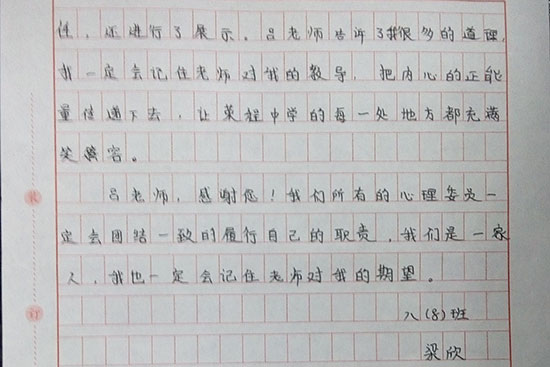 佳，还进行了展示。吕老师告诉了我很多的道理，
我一定会记住老师对我的教导，把内心的正能
量传递下去，让英程中学的每一处地方都充满
笑容。
吕老师，感谢您！我们所有的心理委员一
定会团结一致的履行自己的职责，我们是一家
人，我也一定会记住老师对我的期望。
八(8)班
梁欣
装
订